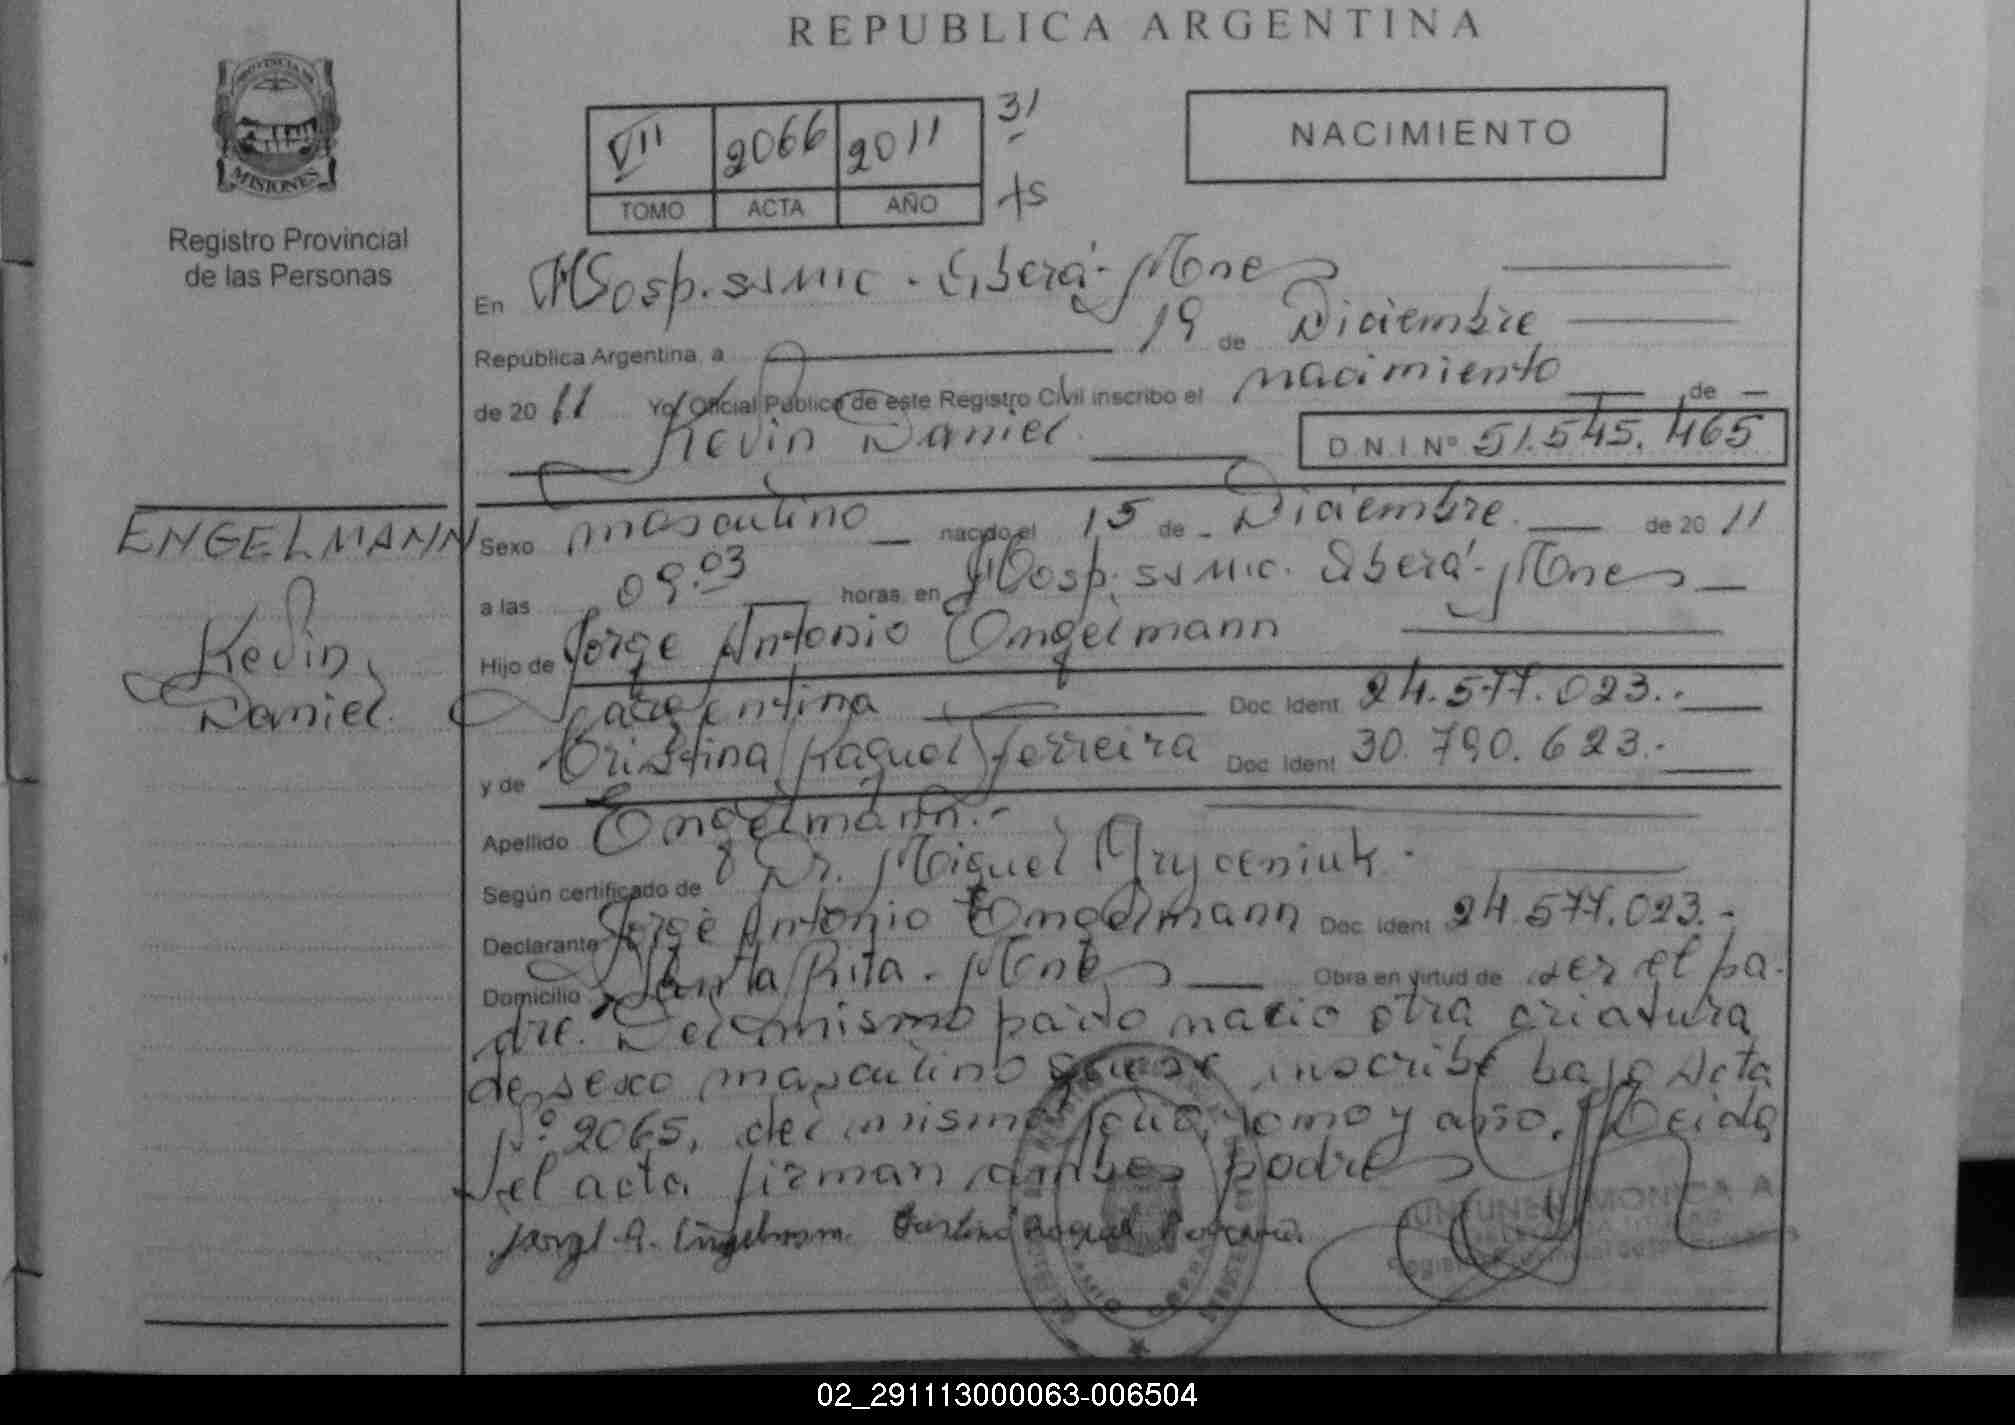 REPUBLICA ARGENTINA
PROVINCIA DE
MISIONES
Registro Provincial
de las Personas
VII 2066 2011 31
TOMO ACTA AÑO
NACIMIENTO
En Hosp. SAMIC. Oberá - Mnes
República Argentina, a 19 de Diciembre
de 2011 Yo, Oficial Público de este Registro Civil inscribo el nacimiento de
Kevin Daniel.
D.N.I Nº 51.545.465
ENGELMANN
Kevin
Daniel.
Sexo masculino nacido el 15 de Diciembre. de 2011
a las 09.03 horas, en Hosp. SAMIC. Oberá - Mnes
Hijo de Jorge Antonio Engelmann
argentina Doc. Ident. 24.577.023.-
y de Cristina Raquel Ferreira Doc. Ident. 30.790.623.-
Apellido Engelmann.-
Según certificado de Dr. Miguel Hryceniuk.
Declarante Jorge Antonio Engelmann Doc. Ident. 24.577.023.-
Domicilio Santa Rita. Mnes Obra en virtud de ser el pa-
dre. Del mismo parto nacio otra criatura
de sexo masculino que se inscribe bajo Acta
Nº 2065, del mismo tomo y año. Leida
el acta firman ambos padres
Jorge A. Engelmann. Cristina Raquel Ferreira
MONICA A
02_291113000063-006504